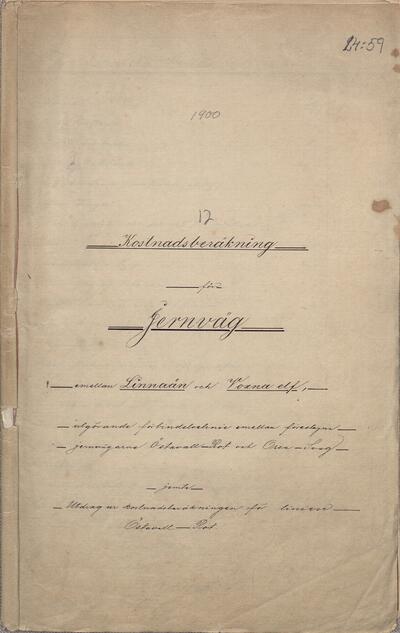 24:59
1900
12
Kostnadsberäkning
för
Jernväg
emellan Linnaån och Voxna elf,
utgörande förbindelselinie emellan föreslagna
jernvägarne Östavall—Rot och Orsa—Sveg
jemte
Utdrag ur kostnadsberäkningen för linien
Östavall—Rot.